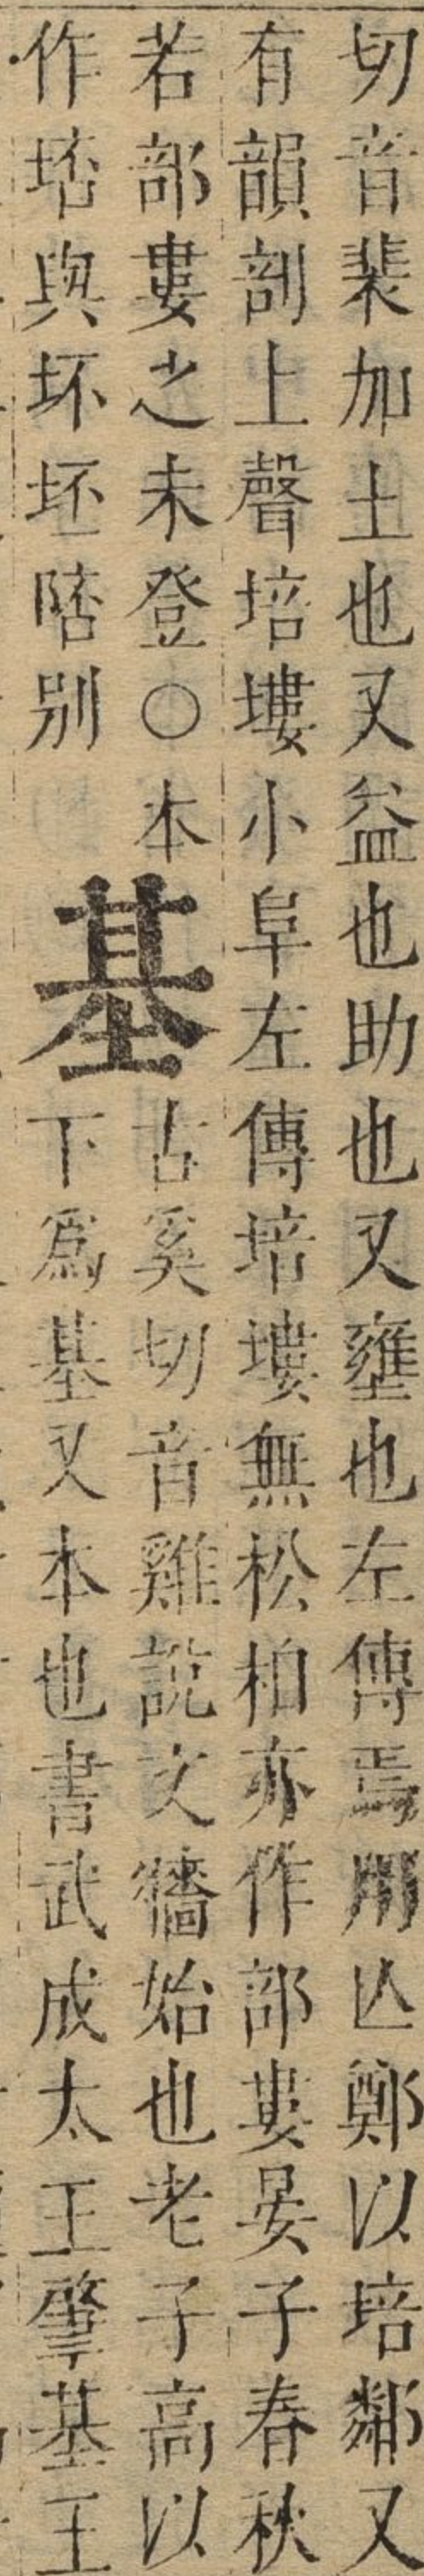 切音裴加土也又益也助也又壅也左傳焉用亾鄭以培鄰又
有韻剖上聲培塿小阜左傳培塿無松柏亦作部婁晏子春秋
若部婁之未登○本
作㙃與坏坯陪别
基
古奚切音雞說文牆始也老子高以
下爲基又本也書武成太王肇基王